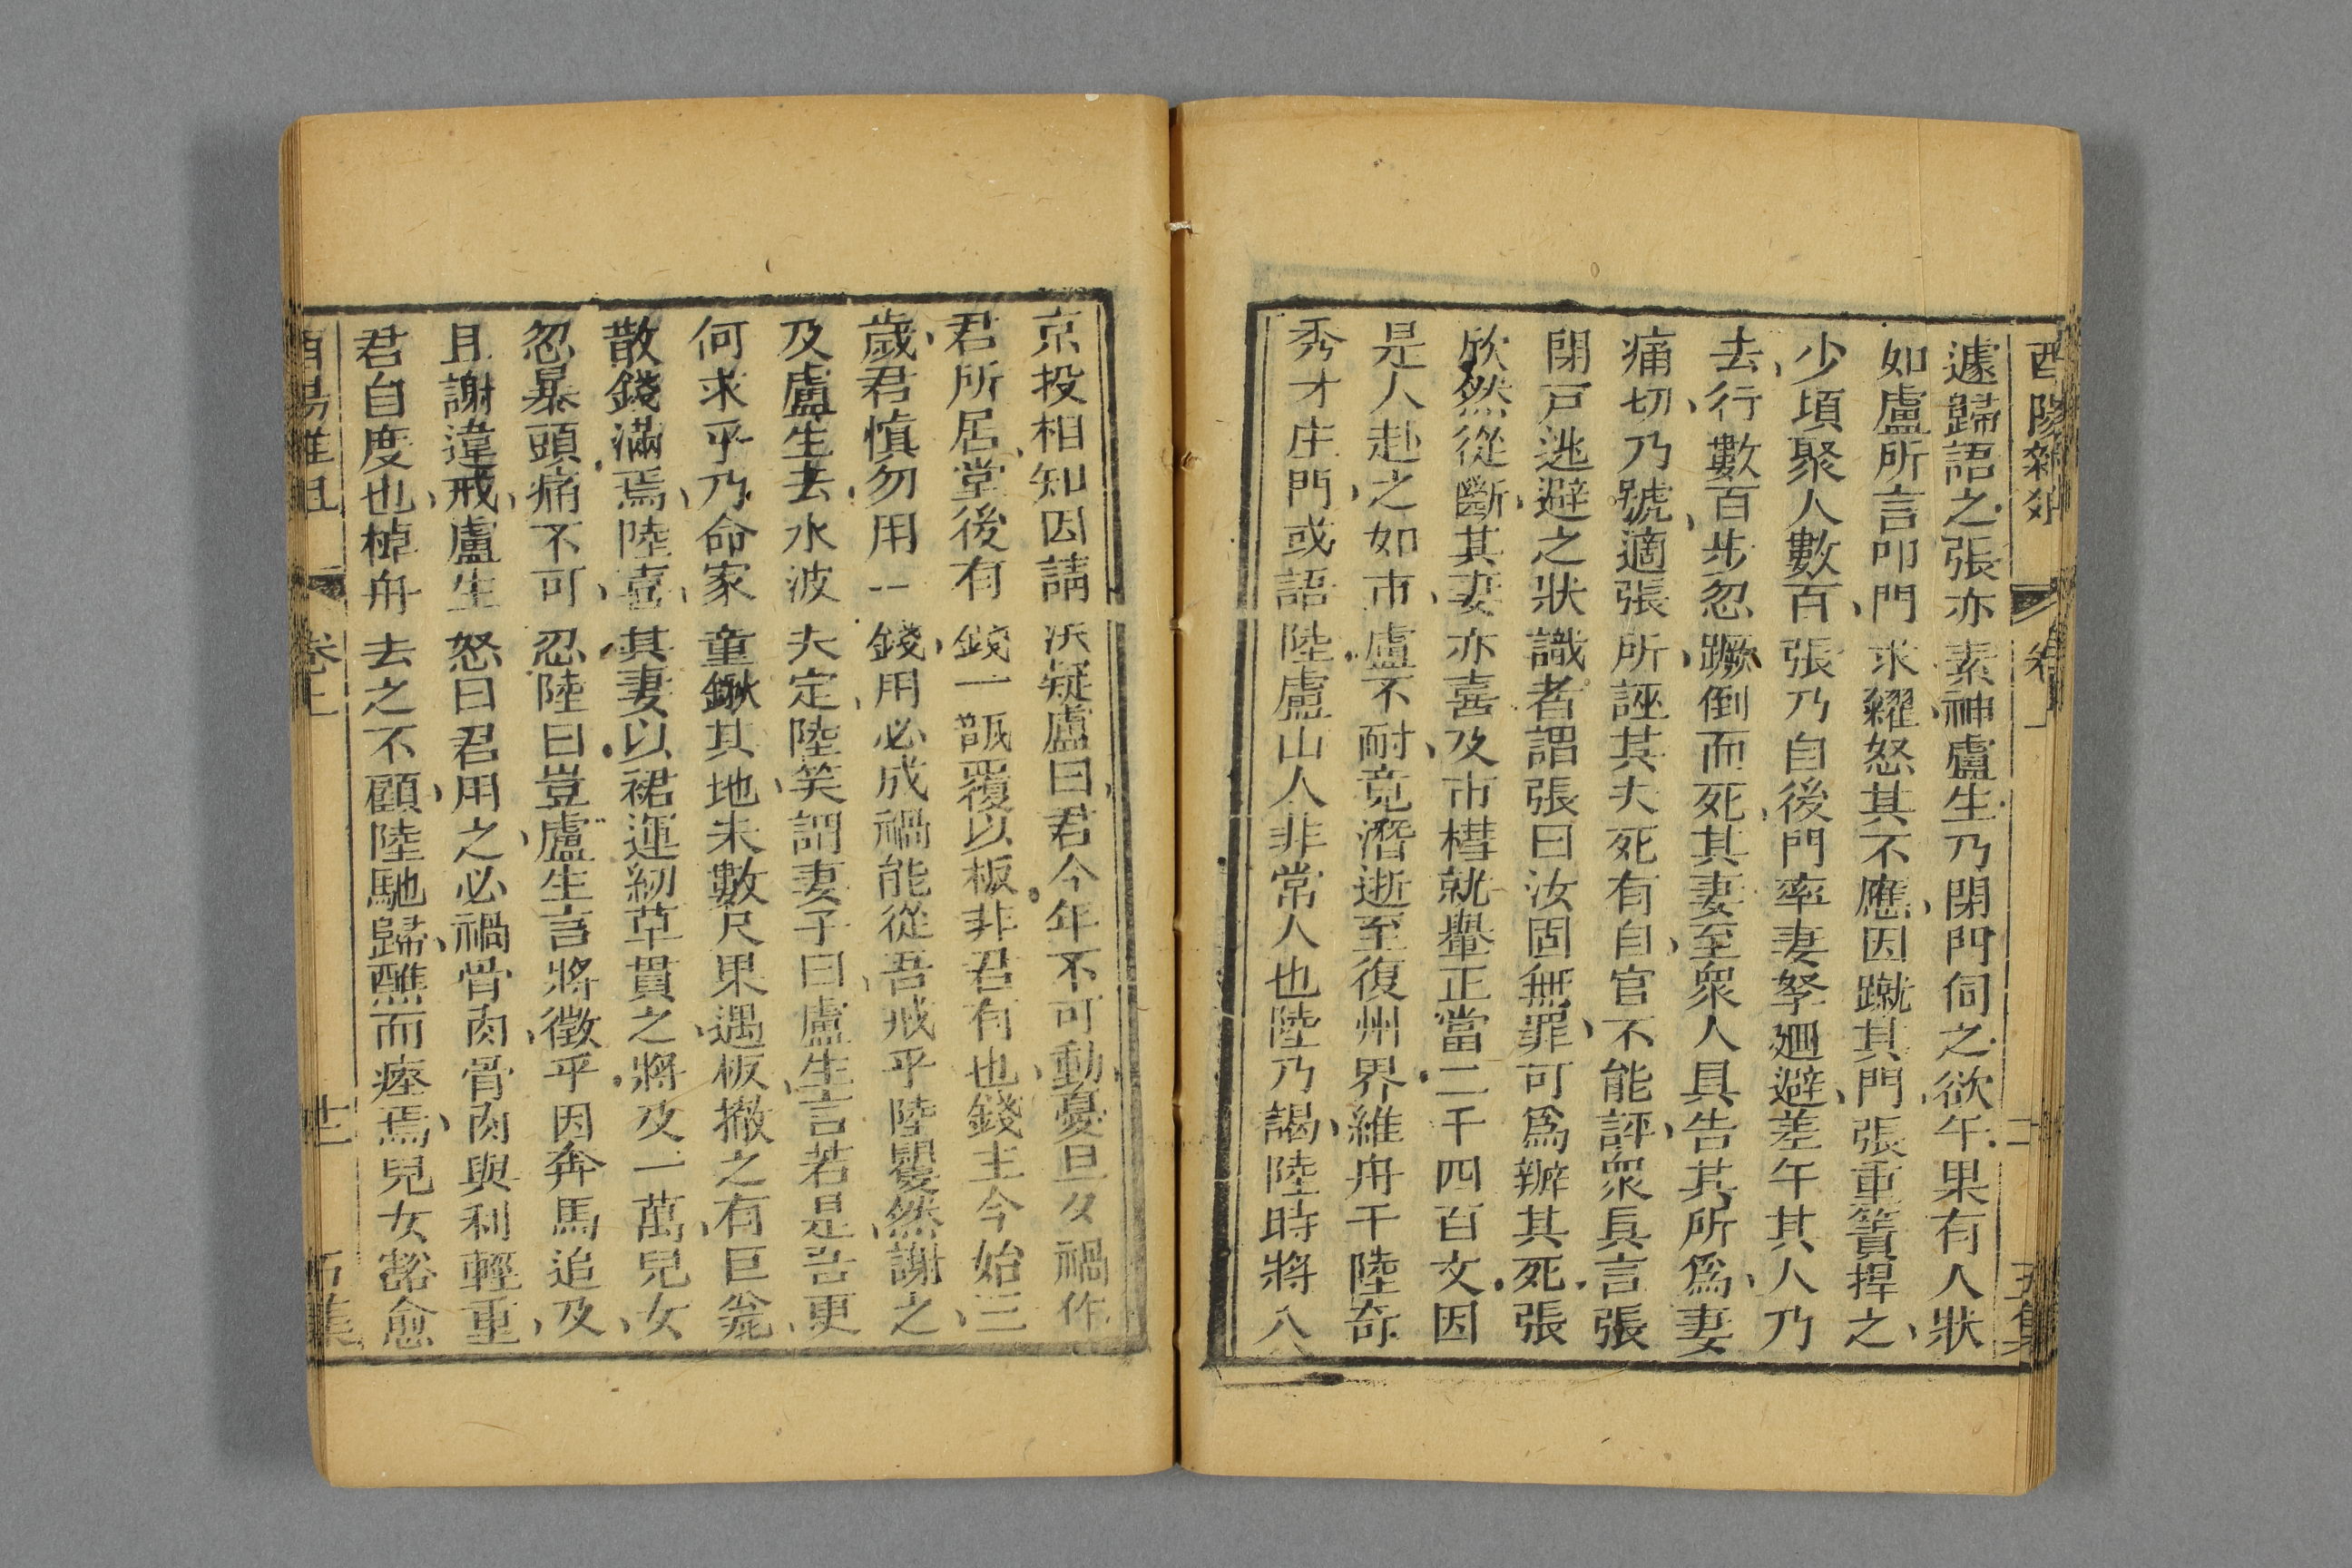 酉陽雜俎 卷 二 五集
遽歸語之張亦素神盧生乃閉門伺之欲午果有人狀
如盧所言叩門求糴怒其不應因蹴其門張重簣捍之
少頃聚人數百張乃自後門率妻孥廻避差午其人乃
去行數百步忽蹶倒而死其妻至衆人具告其所爲妻
痛切乃號適張所誣其夫死有自官不能評衆具言張
閉戸逃避之狀識者謂張曰汝固無罪可爲辦其死張
欣然從斷其妻亦喜及市槥就轝正當二千四百文因
是人赴之如市盧不耐竟潛逝至復州界維舟于陸奇
秀才庄門或語陸盧山人非常人也陸乃謁陸時將入
京投相知因請決疑盧曰君今年不可動憂旦夕禍作
君所居堂後有錢一瓿覆以板非君有也錢主今始三
歲君慎勿用一錢用必成禍能從吾戒乎陸矍然謝之
及盧生去水波夫定陸笑謂妻子曰盧生言若是吾更
何求乎乃命家童鍬其地未數尺果遇板撤之有巨瓮
散錢滿焉陸喜其妻以裙運紉草貫之將及一萬兒女
忽暴頭痛不可忍陸曰豈盧生言將徵乎因奔馬追及
且謝違戒盧生怒曰君用之必禍骨肉骨肉與利輕重
君自度也棹舟去之不顧陸馳歸醮而瘞焉兒女豁愈
酉陽雜俎 卷上 廿一